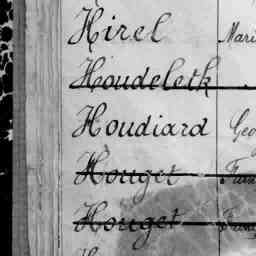 Hirel Mari
Houdeleck
Houdiard Geo
Houget
Houget